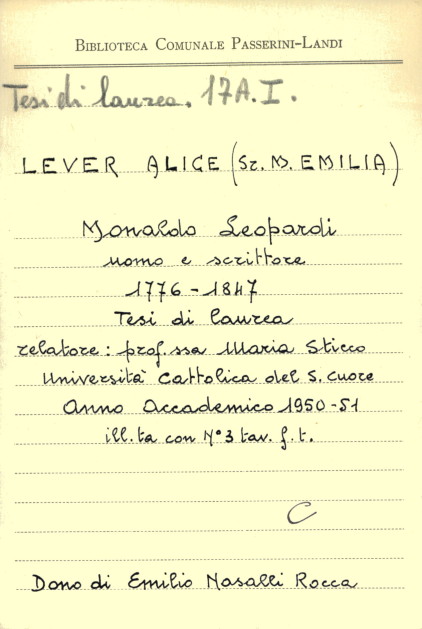 BIBLIOTECA COMUNALE PASSERINI-LANDI
Tesi di laurea. 17A.I.
LEVER ALICE (Sr. M. EMILIA)
Monaldo Leopardi
uomo e scrittore
1776-1847
Tesi di laurea
relatore: prof.ssa Maria Sticco
Università Cattolica del S. Cuore
Anno Accademico 1950-51
ill.ta con N° 3 tav. f.t.
C
Dono di Emilio Nasalli Rocca